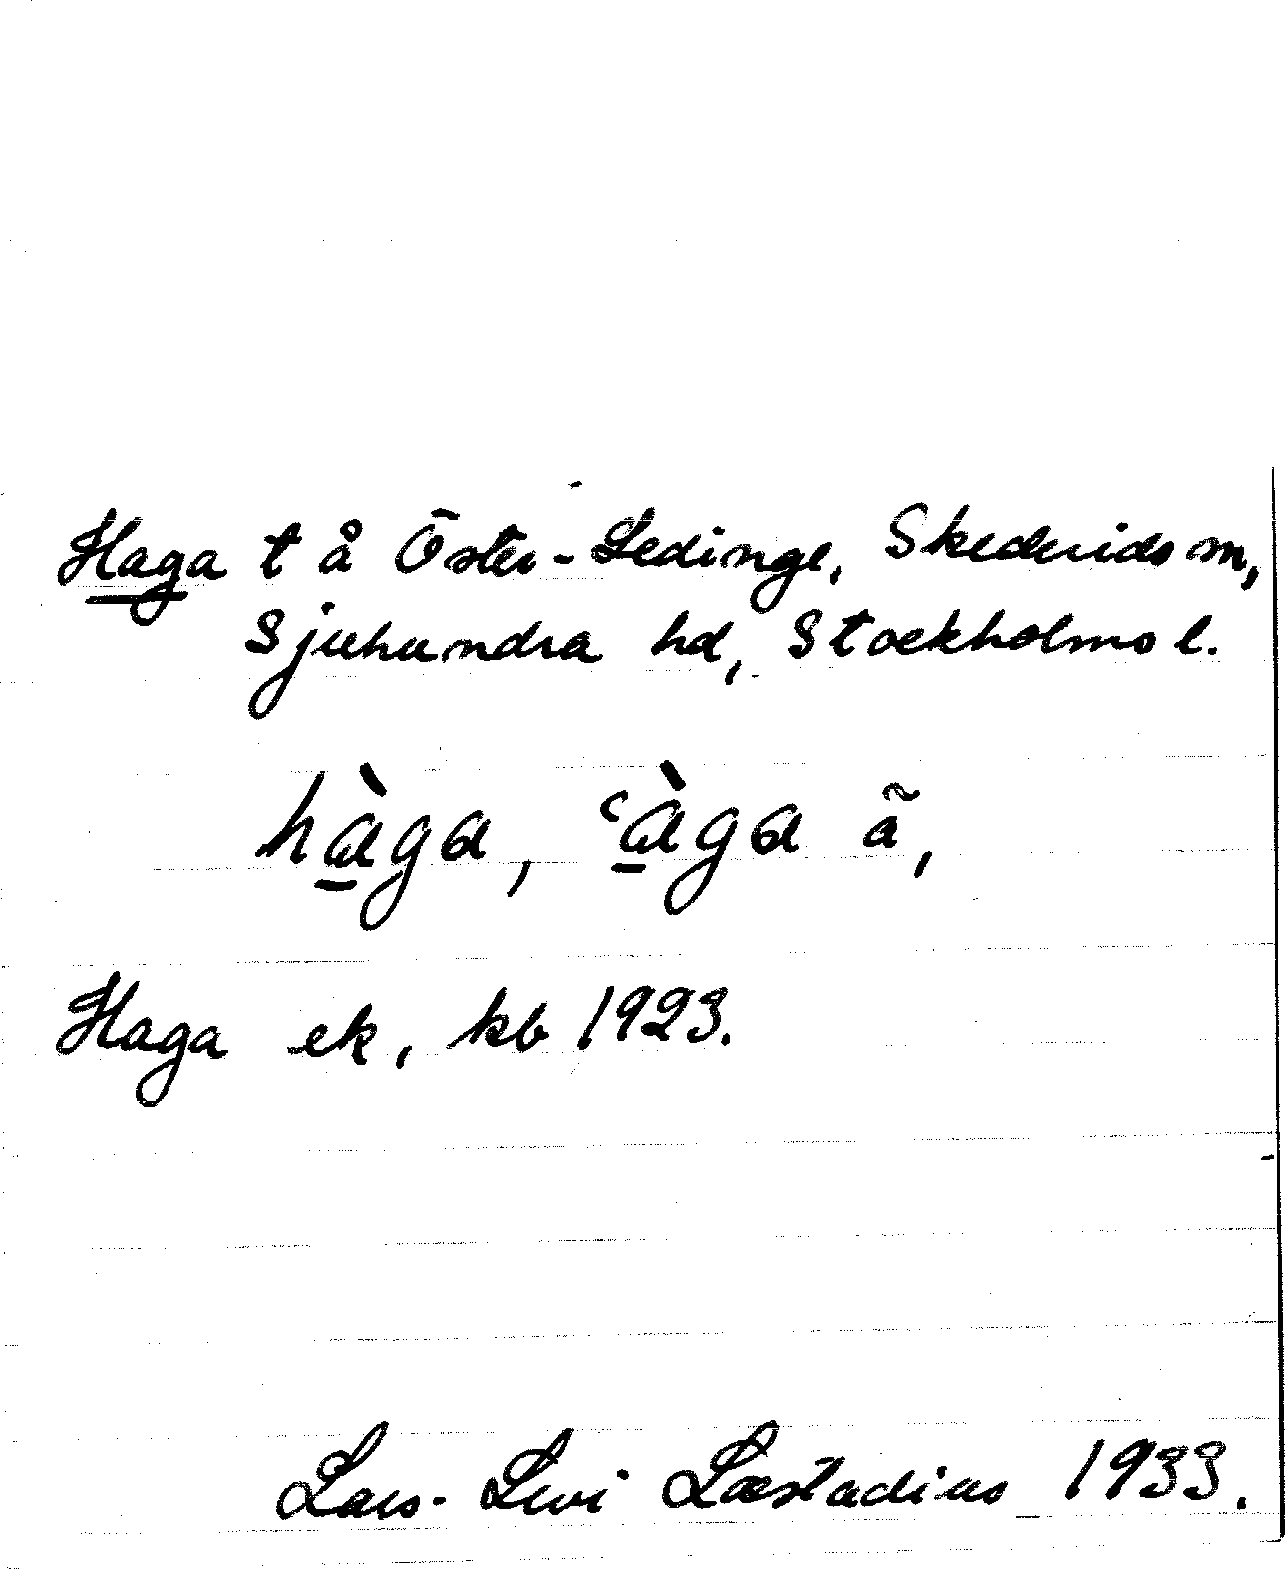 Haga t å Öster-Ledinge, Skederids sn,
Sjuhundra hd, Stockholms l.
hа̲̀ga, ʿа̲̀ga ã,
Haga ek, kb 1923.
Lars-Levi Læstadius 1933.